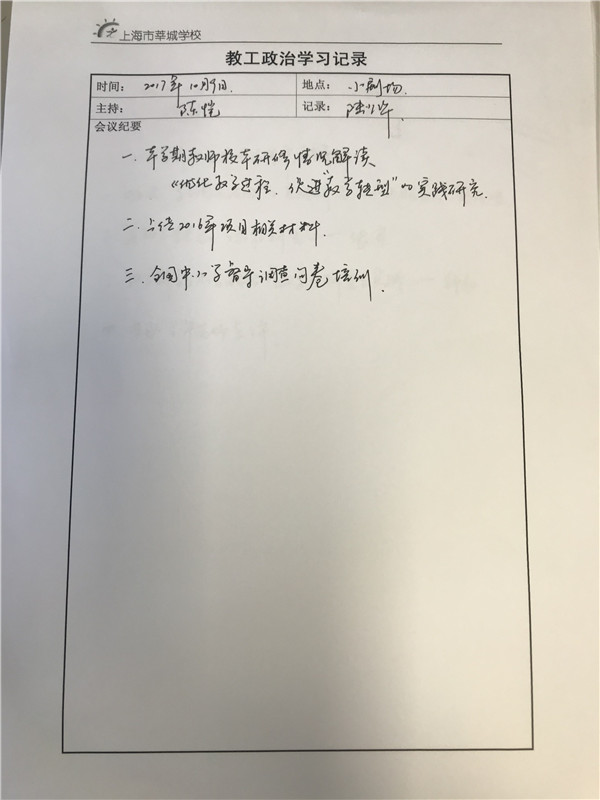 上海市莘城学校
教工政治学习记录
时间： 2017年10月9日. 地点： 小剧场.
主持： 陈恺 记录：
会议纪要
一. 本学期教师校本研修情况解读
《优化教学过程. 促进“教学转型”的实践研究.
二. 上传2016年项目相关材料.
三. 全国中小学督导调查问卷培训.